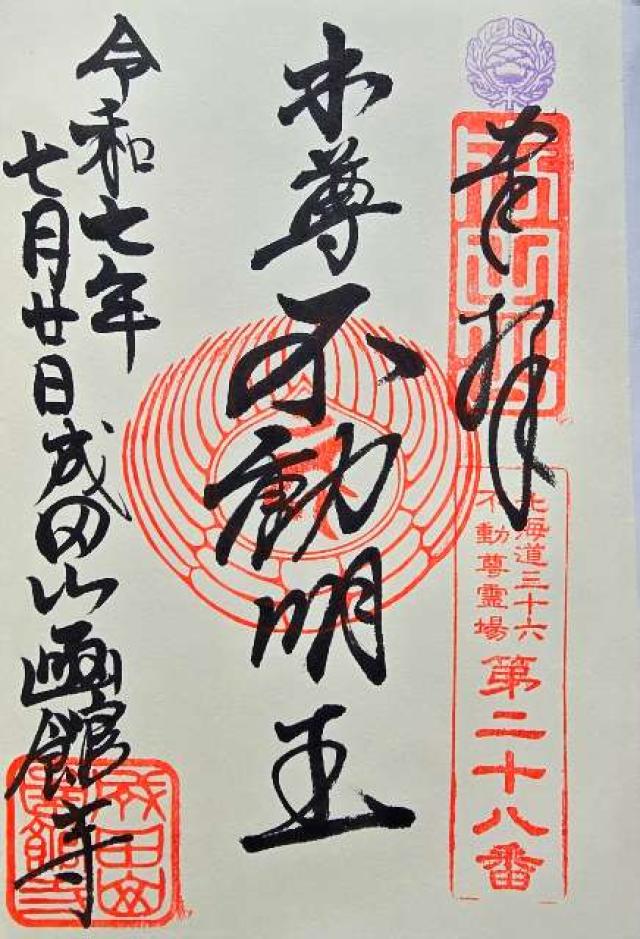 奉拝
北海道三十六
不動尊霊場
第二十八番
本尊不動明王
令和七年
七月廿日成田山函館寺
成田山
函館寺